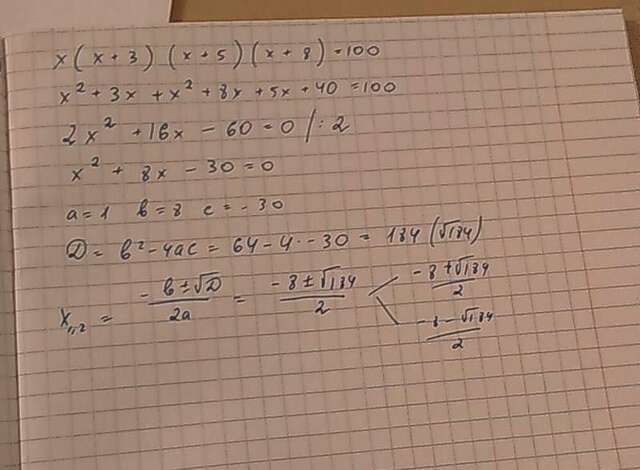 x(x+3)(x+5)(x+8)=100
x²+3x+x²+8x+5x+40=100
2x²+16x-60=0/:2
x²+8x-30=0
a=1 b=8 c=-30
D=b²-4ac=64-4·-30=184(√184)
x₁,₂ = (-b±√D)/2a = (-8±√184)/2 < (-8+√184)/2
(-8-√184)/2